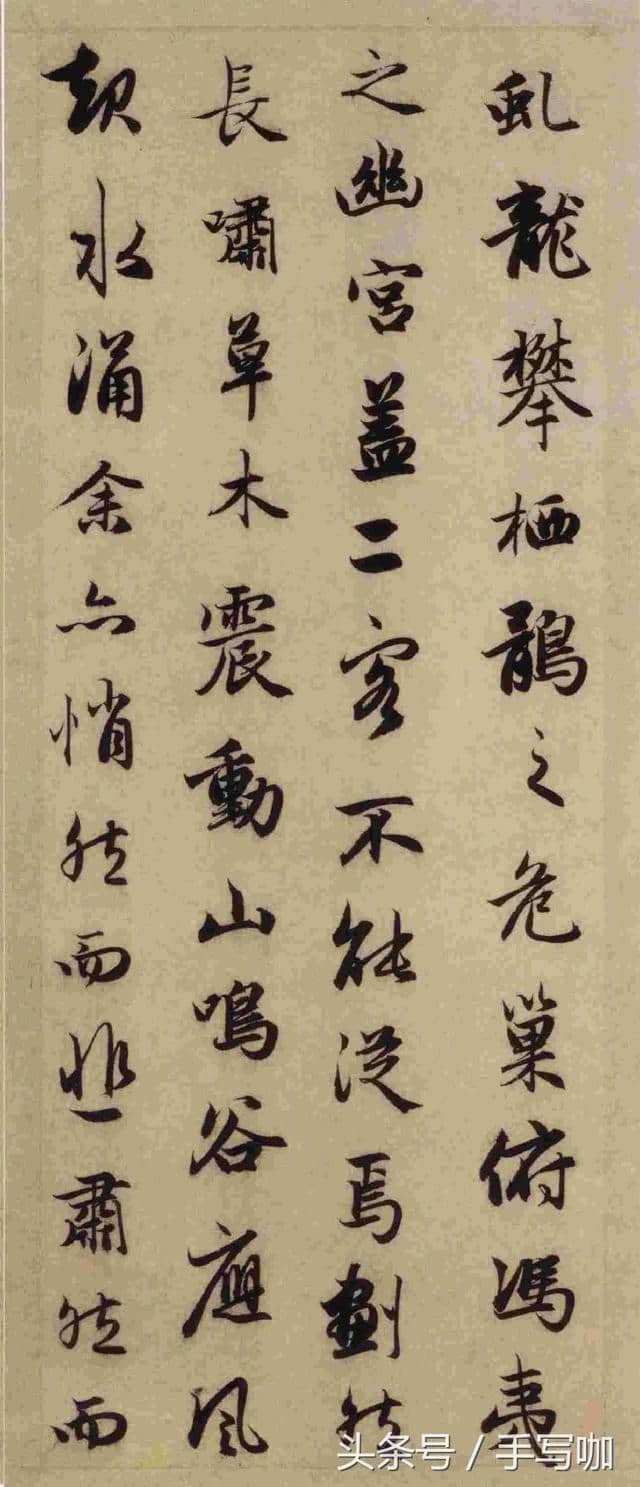 虬龍攀栖鶻之危巢俯馮夷
之幽宮蓋二客不能從焉劃然
長嘯草木震動山鳴谷應風
起水涌余亦悄然而悲肅然而
头条号 / 手写咖